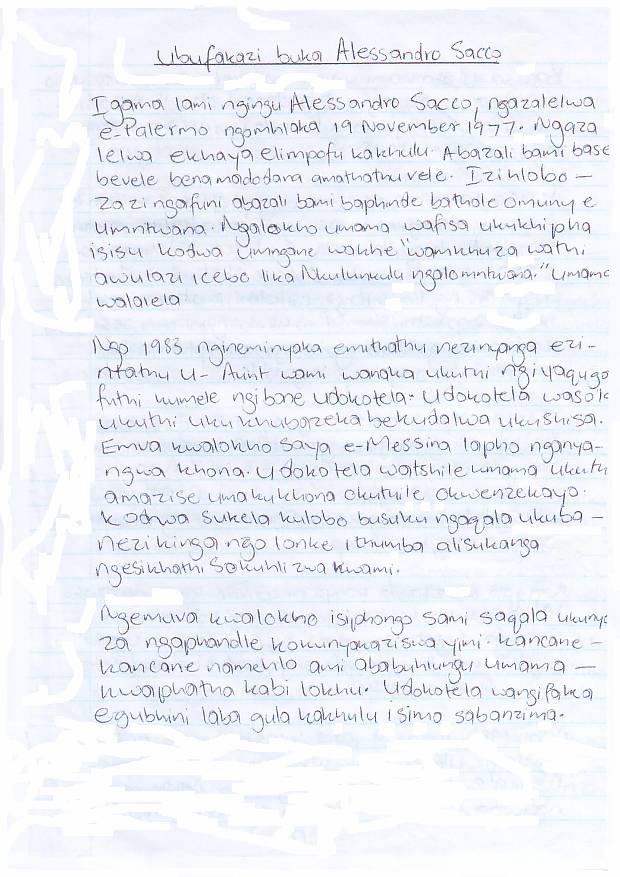 Ubufakazi buka Alessandro Sacco
Igama lami ngingu Alessandro Sacco, ngazalelwa
e-Palermo ngomhlaka 19 November 1977. Ngaza
lelwa ekhaya elimpofu kakhulu. Abazali bami base
bevele benamadodana amathathu vele. Izihlobo -
zazingafuni abazali bami baphinde bathole omuny e
umntwana. Ngalokho umama wafisa ukukhipha
isisu kodwa umngane wakhe "wamkhuza wathi
awulazi icebo lika Nkulunkulu ngalomntwana." Umama
walalela
Ngo 1983 ngineminyaka emithathu nezinyanga ezi-
ntathu u- Auint wami wanaka ukuthi ngiyaqugo
futhi kumele ngibone udokotela. Udokotela wasola
ukuthi ukukhubazeka bekudalwa ukushisa.
Emva kwalokho saya e-Messina lapho nganya-
ngwa khona. Udokotela watshile umama ukuth
amazise uma kukhona okuthile okwenzekayo.
Kodwa sukela kulobo busuku ngaqala ukuba -
nezikinga ngo lonke ithumba alisukanga
ngesikhathi sokuhlizwa kwami.
Ngemuva kwalokho isiphongo sami saqala ukunye
za ngaphandle kokunyakaziswa yimi. Kancane -
kancane namehlo ami ababuhlungu Umama -
kwaphatha kabi lokhu. Udokotela wangifaka
egubhini laba gula kakhulu isimo sabanzima.